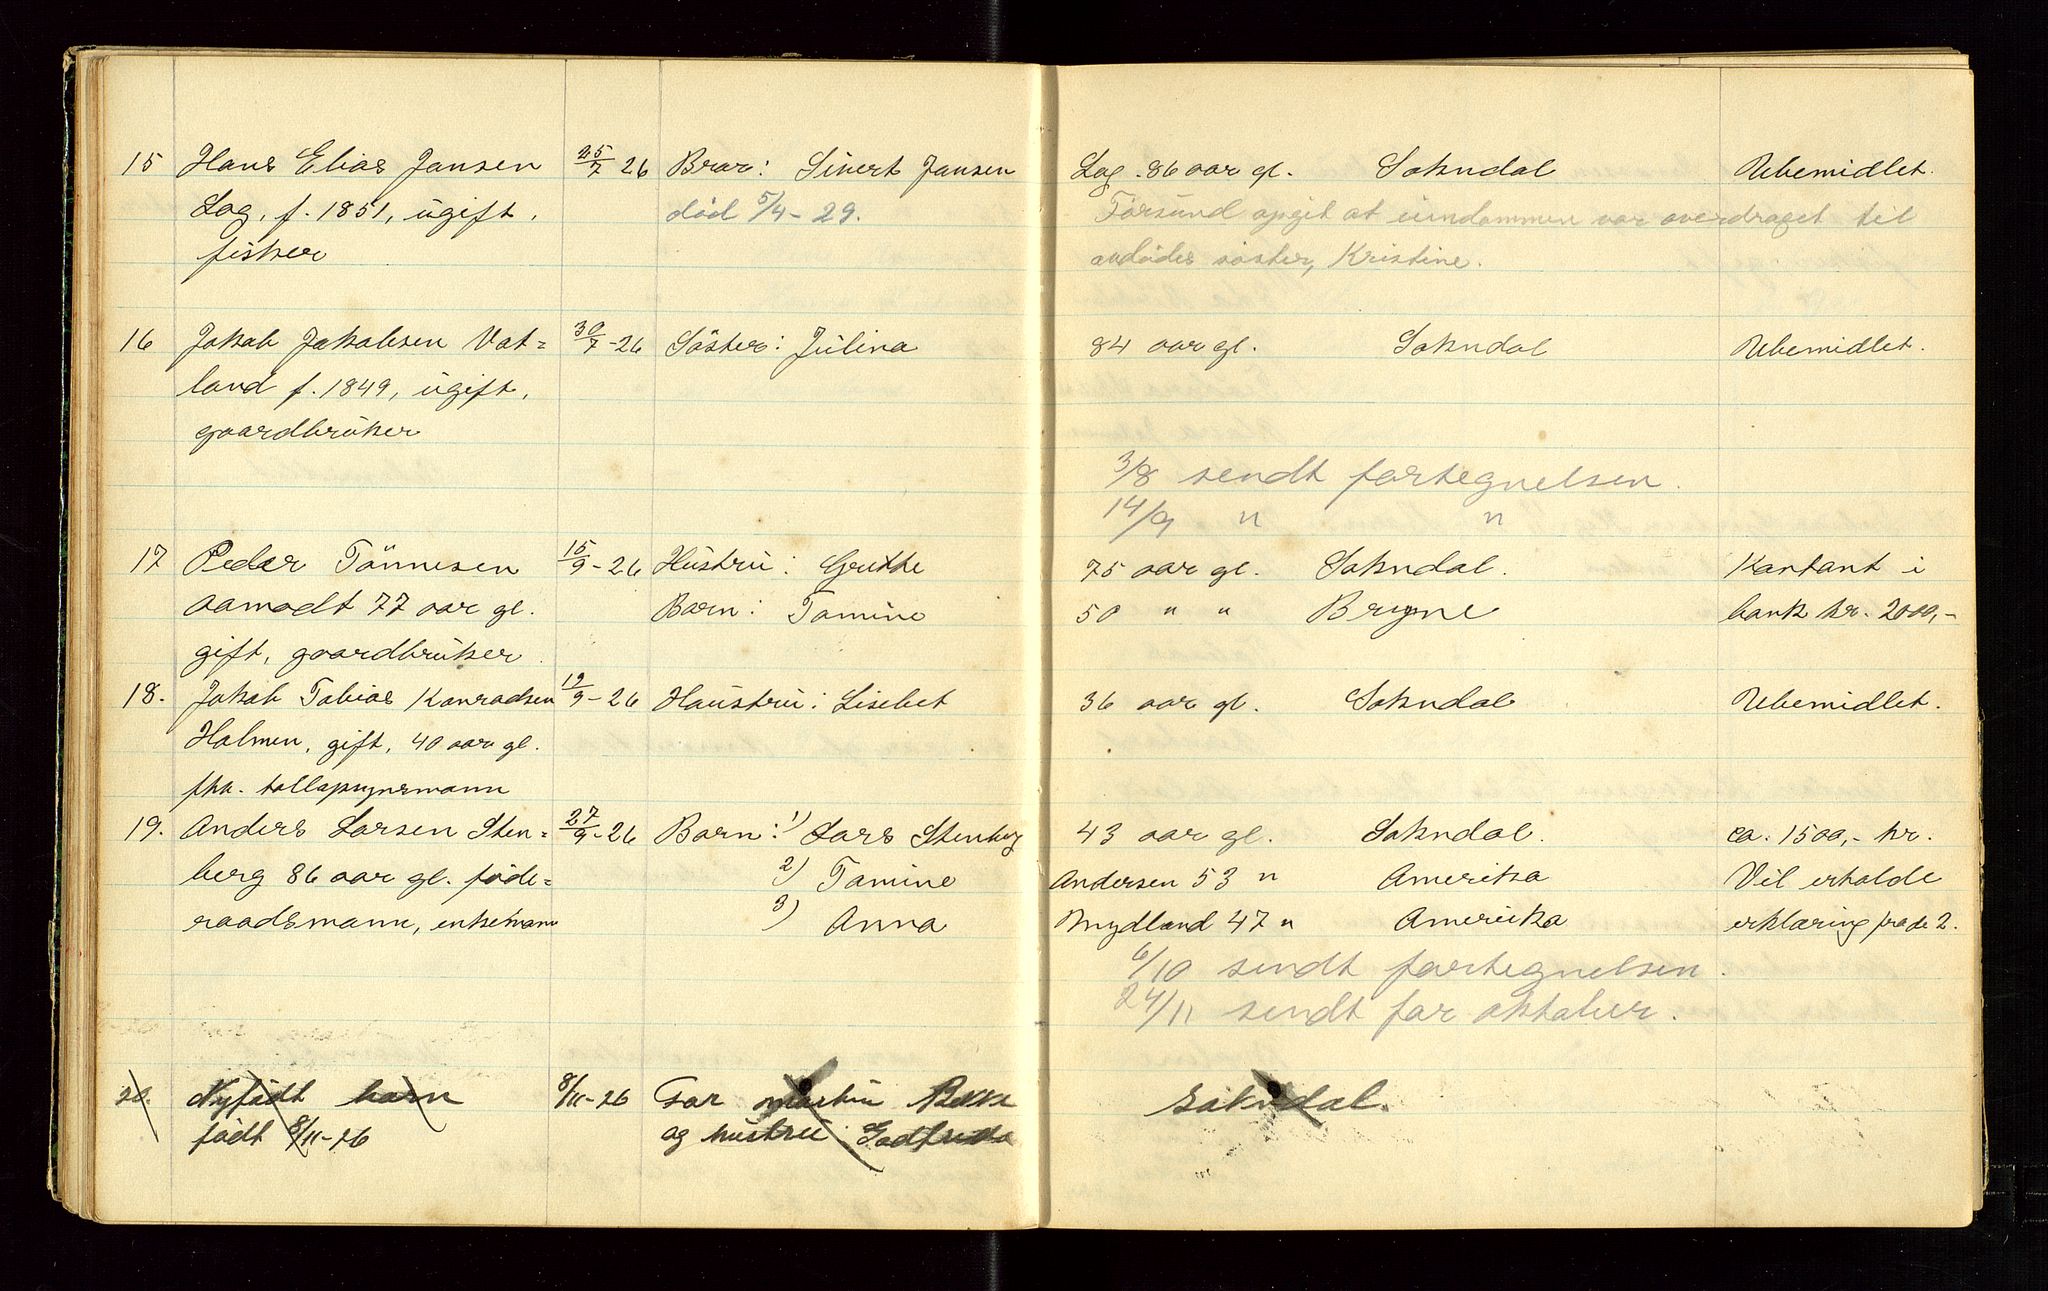 15 Hans Elias Jansen 25/7 26 Bror: Sivert Jansen Log. 86 aar gl. Sokndal Ubemidlet.
Log, f. 1851, ugift, død 5/4-29. opgit at eiendommen var overdraget til
fisker avdødes søster, Kristine.
16 Jakob Jakobsen Vat= 30/7-26 Søster: Julina 84 aar gl. Sokndal Ubemidlet.
land f. 1849, ugift,
gaardbruker
3/8 sendt fortegnelsen.
14/9 " "
17 Peder Tönnesen 15/9-26 Hustru: Gruthe 75 aar gl. Sokndal. Kontant i
Aamodt 77 aar gl. Barn: Tomine 50 " " Bryne bank kr. 2000,-
gift, gaardbruker
18. Jakob Tobias Konradsen 19/9-26 Haustru: Lisebet 36 aar gl. Sokndal Ubemidlet.
Holmen, gift, 40 aar gl.
fhv. tollopsynsmann
19. Anders Larsen Sten= 27/9-26 Barn: 1) Lars Stenberg 43 aar gl. Sokndal. ca. 1500,- kr.
berg 86 aar gl. føde= 2) Tomine Andersen 53 " Amerika Vil erholde
raadsmann, enkemann 3) Anna Mydland 47 " Amerika erklæring fra de 2.
6/10 sendt fortegnelsen.
24/11 sendt for oktober.
20. Nyfødt barn 8/11-26 Far Martin Bekke Sokndal.
født 8/11-26 og hustru Godfrida